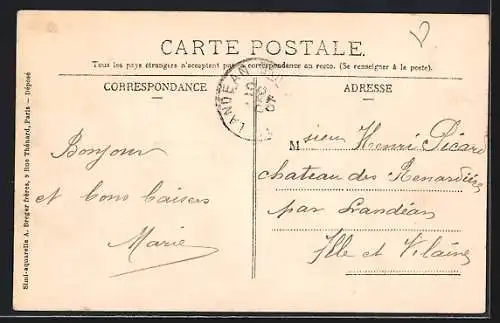 CARTE POSTALE.
Tous les pays étrangers n'acceptent pas la correspondance au recto. (Se renseigner à la poste).
CORRESPONDANCE
ADRESSE
LANDEAN
Bonjour
et bons baisers
Marie
Monsieur Henri Picard
chateau des Renardières
par Landéan
Ille et Vilaine
Simi-aquarelle A. Breger frères, 9 Rue Thénard, Paris — Déposé